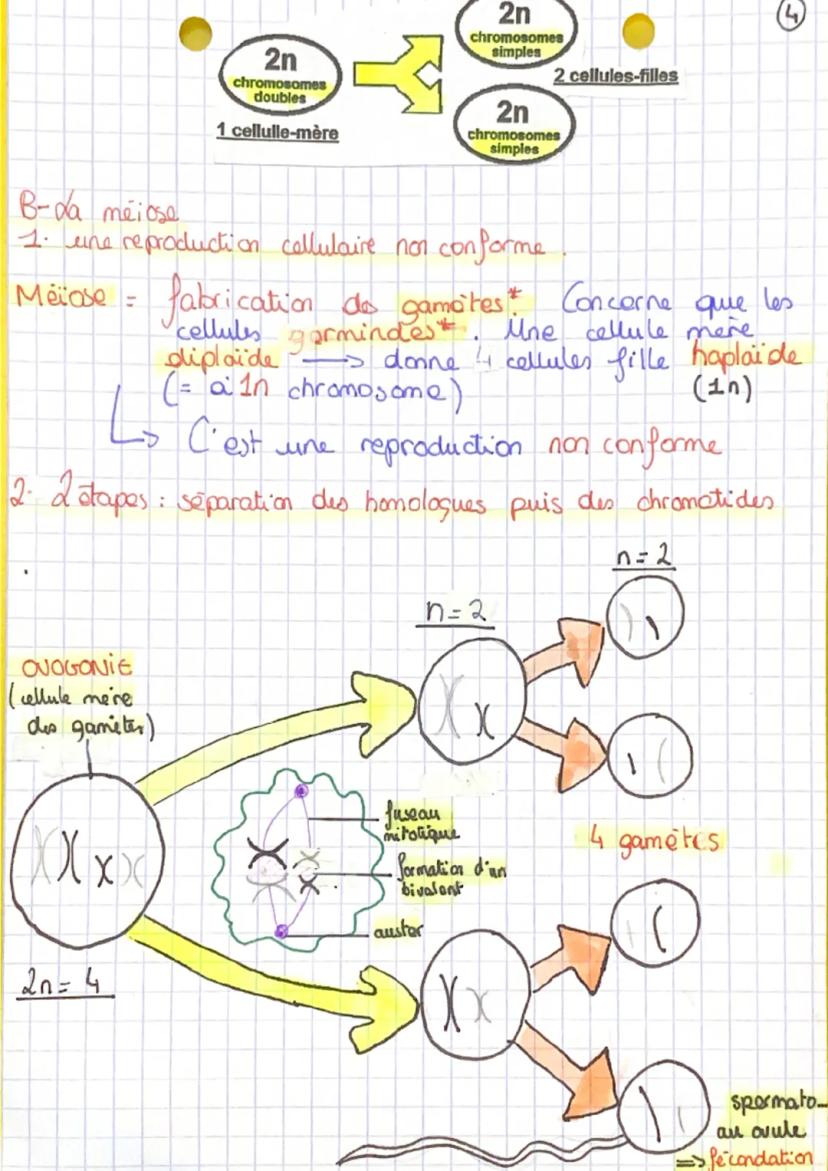 4
2n
chromosomes
simples
2n
chromosomes
doubles
2 cellules-filles
1 cellulle-mère
2n
chromosomes
simples
B- La méiose
1. une reproduction cellulaire non conforme.
Méïose = fabrication des gamètes*. Concerne que les
cellules germindes*. Une cellule mère
diploïde → donne 4 cellules fille haploïde
(= à 1n chromosome) (1n)
↳ C'est une reproduction non conforme
2. 2 étapes : séparation des homologues puis des chromatides
n=2
n=2
OVOGONIE
(cellule mère
des gamètes)
fuseau
mitotique
4 gamètes
formation d'un
bivalent
auster
2n= 4
spermato-
au ovule
=> fécondation